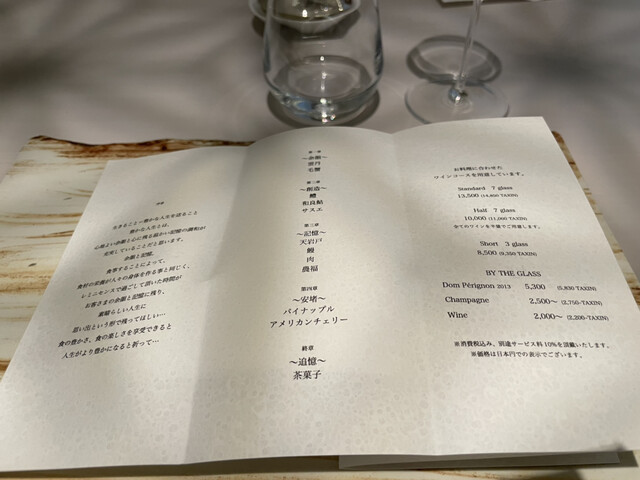 序章
生きること＝豊かな人生を送ること
豊かな人生とは、
心地よい余韻と心に残る温かい記憶の調和が
充実していることだと思います。
余韻と記憶。
食事することによって、
食材の栄養が人々の身体を作る事と同じく、
レミニセンスで過ごして頂いた時間が
お客さまの余韻と記憶に残り、
素晴らしい人生に
思い出という形で残ってほしい…
食の豊かさ、食の楽しさを享受できると
人生がより豊かになると祈って…
第一章
〜余韻〜
雲丹
毛蟹
第二章
〜創造〜
鱧
和良鮎
サスエ
第三章
〜記憶〜
天岩戸
鰻
肉
農福
第四章
〜安堵〜
パイナップル
アメリカンチェリー
終章
〜追憶〜
茶菓子
お料理に合わせた
ワインコースを用意しています。
Standard 7 glass
13,500 (14,850 TAXIN)
Half 7 glass
10,000 (11,000 TAXIN)
全てのワインを半量でご用意します。
Short 3 glass
8,500 (9,350 TAXIN)
BY THE GLASS
Dom Pérignon 2013 5,300 (5,830 TAXIN)
Champagne 2,500〜 (2,750-TAXIN)
Wine 2,000〜 (2,200-TAXIN)
※消費税込み、別途サービス料10%を頂戴いたします。
※価格は日本円での表示でございます。